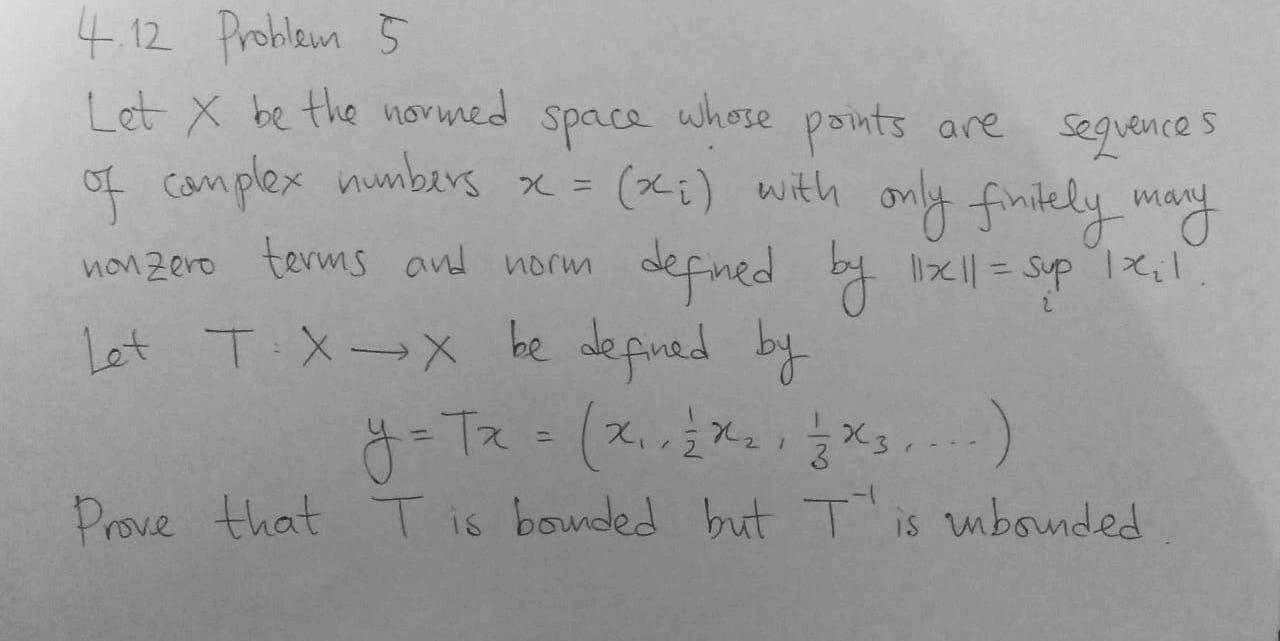 4.12 Problem 5
Let X be the normed space whose points are sequences
of complex numbers x = (xᵢ) with only finitely many
nonzero terms and norm defined by ||x|| = sup |xᵢ|.
i
Let T : X → X be defined by
y = Tx = (x₁, ½x₂, ⅓x₃, ....)
Prove that T is bounded but T⁻¹ is unbounded.